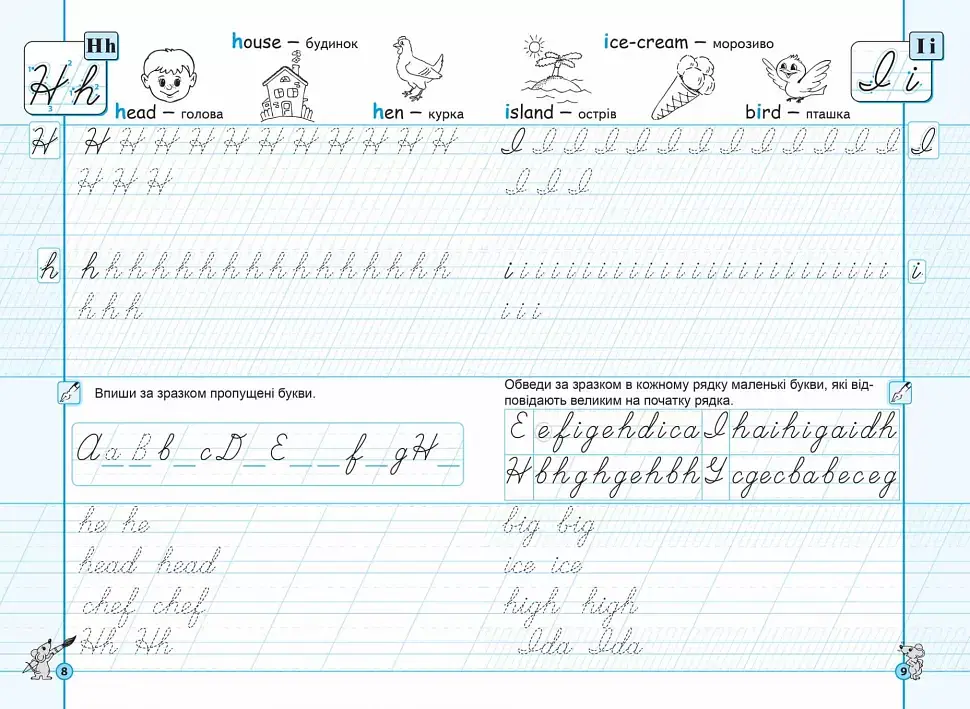 Hh
H h
house – будинок
head – голова
hen – курка
H H H H H H H H H H H H
H H H
h h h h h h h h h h h h h h h h h
h h h
Впиши за зразком пропущені букви.
A a B b _ c D _ E _ _ f _ g H _
he he
head head
chef chef
Hh Hh
8
I i
I i
ice-cream – морозиво
island – острів
bird – пташка
I I I I I I I I I I I I I I
I I I
i i i i i i i i i i i i i i i i i i i i i i i i i i
i i i
Обведи за зразком в кожному рядку маленькі букви, які від-
повідають великим на початку рядка.
E efigehdica I haihigaidh
H bhghgehbh G cgecbabeceg
big big
ice ice
high high
Ida Ida
9